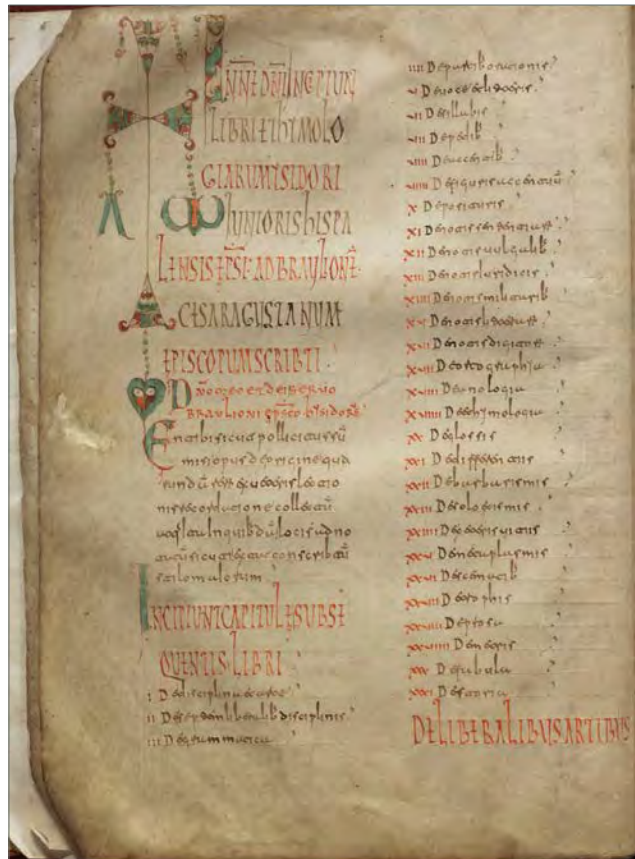 IN N̄E D̄NI INCIPIUN
LIBRI ETHIMOLO
GIARUM ISIDORI
IUNIORIS HISPA
LENSIS EP̄SI · AD BRAULIONE ·
CESARAGUSTANUM
EPISCOPUM SCRIBTI ·
D̄no meo et dei servo
Braulioni
En tibi sicut pollicitus sū
misi opus de origine qua
rundū rerum ex veteris lectio
nis recordatione collectū
locis adno
conscribtū
INCIPIUNT CAPITULE SUBSE
QUENTIS LIBRI
I De disciplina et arte
II De septem liberalib disciplinis
III De grammatica
IIII De partib orationis
V De voce et litteris
VI De sillabis
VII De pedib
VIII De accentib
VIIII De figuris accentuū
X De posituris
XI De notis sententiarum
XII De notis vulgarib
XIII De notis iuridicis
XIIII De notis militarib
XV De notis litterarum
XVI De notis digitorum
XVII De ortographia
XVIII De analogia
XVIIII De ethimologia
XX De glossis
XXI De differentiis
XXII De barbarismis
XXIII De soloecismis
XXIIII De ceteris vitiis
XXV De metaplasmis
XXVI De scematib
XXVII De tropis
XXVIII De prosa
XXVIIII De metris
XXX De fabula
XXXI De storia
DE LIBERALIBUS ARTIBUS